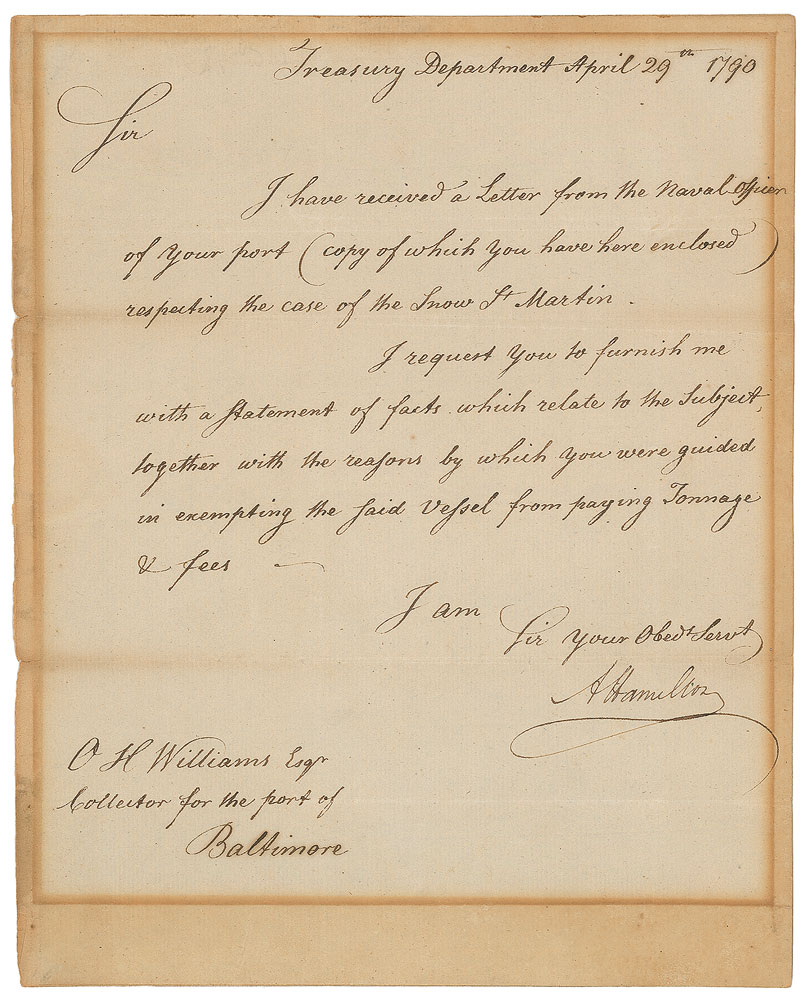 Treasury Department April 29th 1790
Sir
I have received a Letter from the Naval Officer
of Your port (copy of which you have here enclosed)
respecting the case of the Snow St Martin.
I request You to furnish me
with a Statement of facts which relate to the Subject,
together with the reaſons by which you were guided
in exempting the said Veſsel from paying Tonnage
& fees —
I am
Sir Your Obedt Servt
A Hamilton
O H Williams Esqr
Collector for the port of
Baltimore